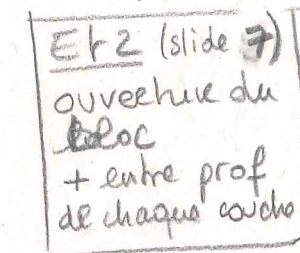 Et 2 (slide 7)
ouverture du
bloc
+ entre prof
de chaque couche